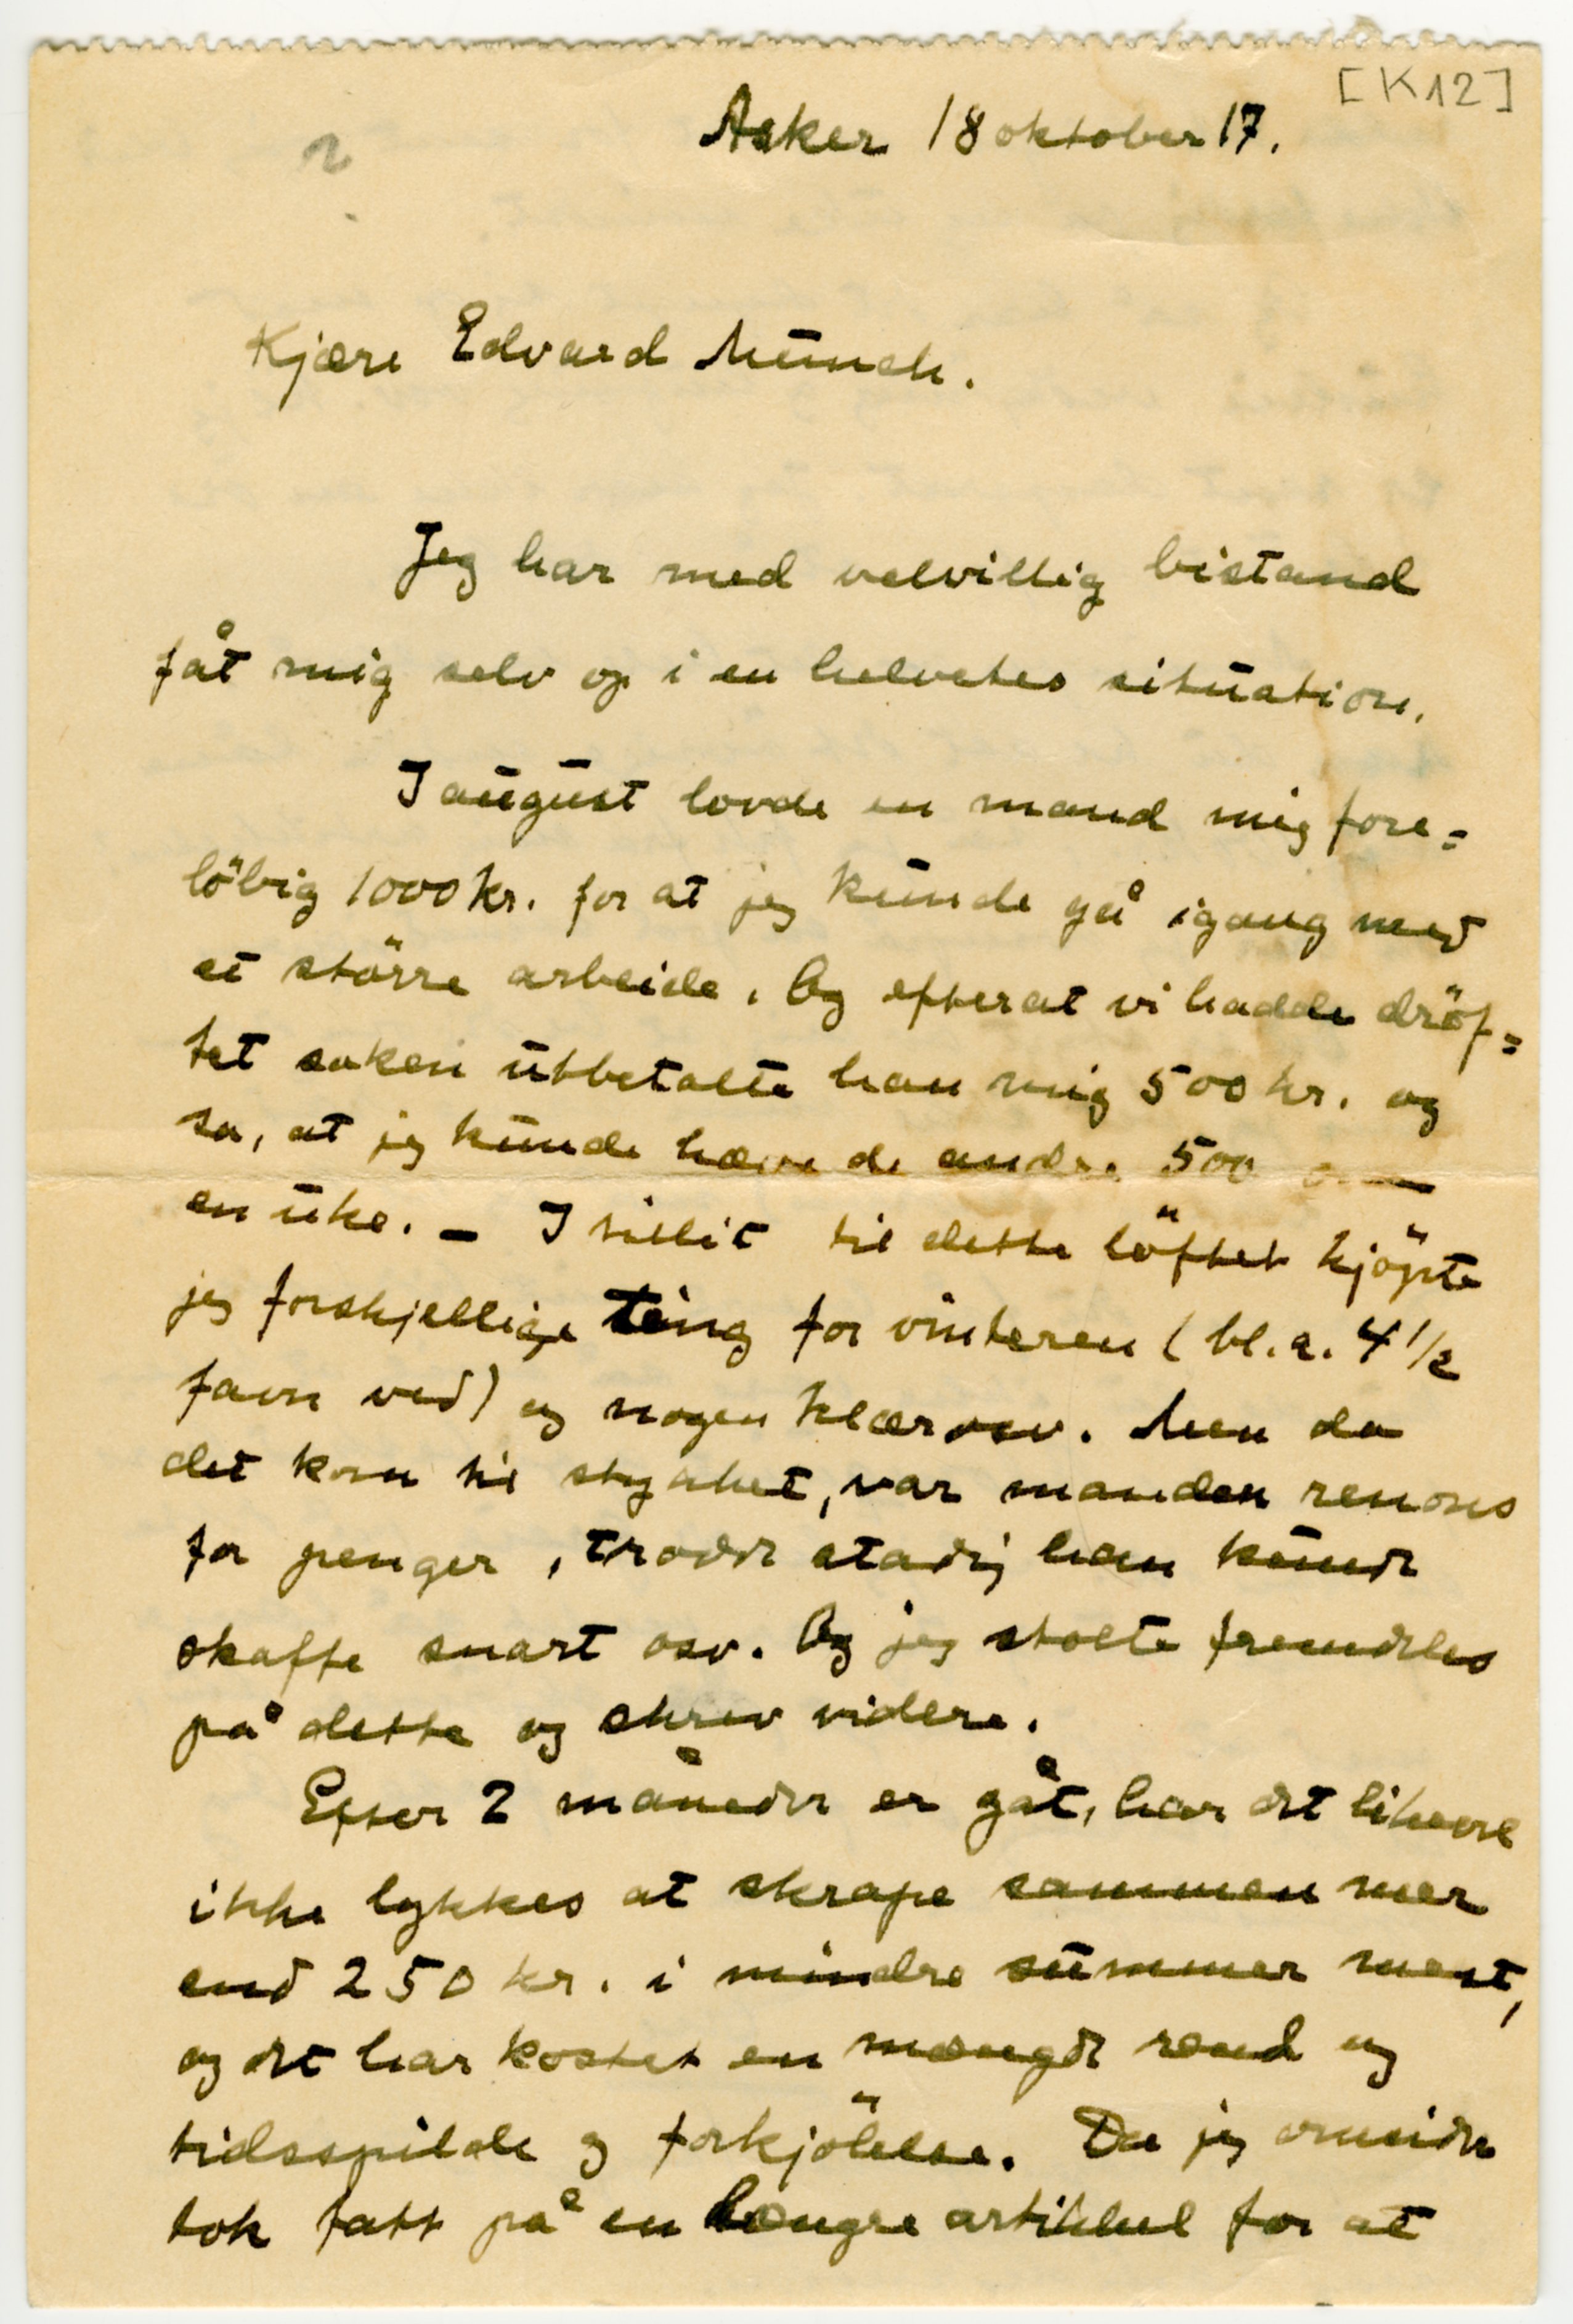 [K12]
Asker 18 oktober 17.
Kjære Edvard Munch.
Jeg har med velvillig bistand
fåt mig selv op i en helvetes situation.
I august lovde en mand mig fore=
löbig 1000 kr. for at jeg kunde gå igang med
et större arbeide. Og efterat vi hadde dröf=
tet saken utbetalte han mig 500 kr. og
sa, at jeg kunde hæve de andre 500 om
en uke. – I tillit til dette löftet kjöpte
jeg forskjellige ting for vinteren (bl.a. 4 1/2
favn ved) og nogen klær osv. Men da
det kom til stykket, var manden renons
for penger, trodde stadig han kunde
skaffe snart osv. Og jeg stolte fremdeles
på dette og skrev videre.
Efter 2 måneder er gåt, har det likevel
ikke lykkes at skrape sammen mer
end 250 kr. i mindre summer mest,
og det har kostet en mængde rend og
tidsspilde og forkjölelse. Da jeg
tok fatt på en længre artikkel for at